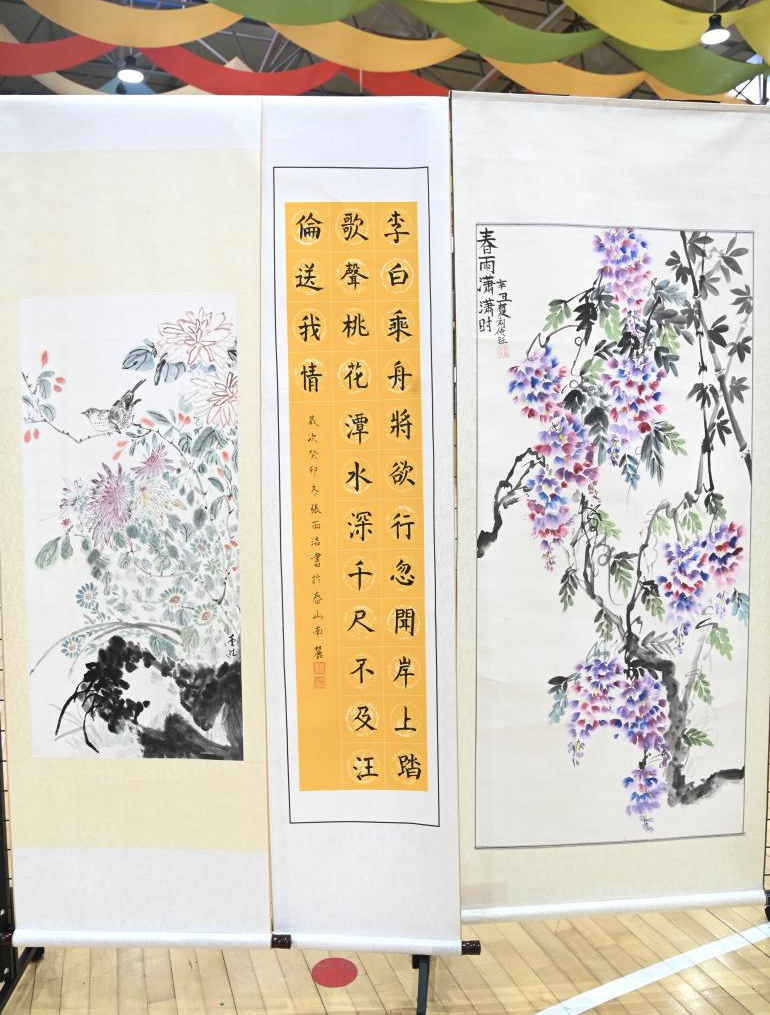 李白乘舟將欲行忽聞岸上踏
歌聲桃花潭水深千尺不及汪
倫送我情
歲次癸卯冬張雨潔書於泰山南麓
春雨瀟瀟时
辛丑夏